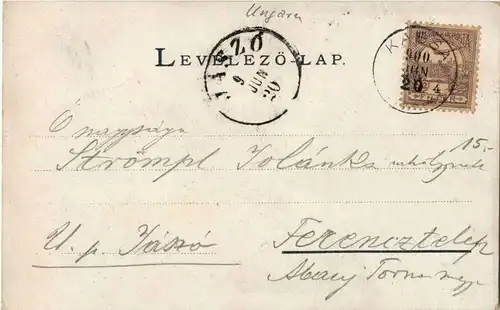 Ungarn
LEVELEZŐ-LAP.
JÁSZÓ
9 JUN 20
900
JUN
20
Ő nagysága
Strömpl Jolánka
15.-
U. p. Jászó
Ferencztelep
Abauj Torna megye